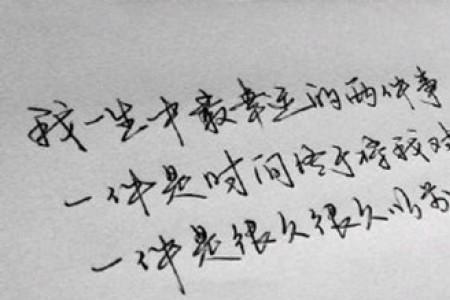 我一生中最幸运的两件事
一件是时间终于将我对
一件是很久很久以前